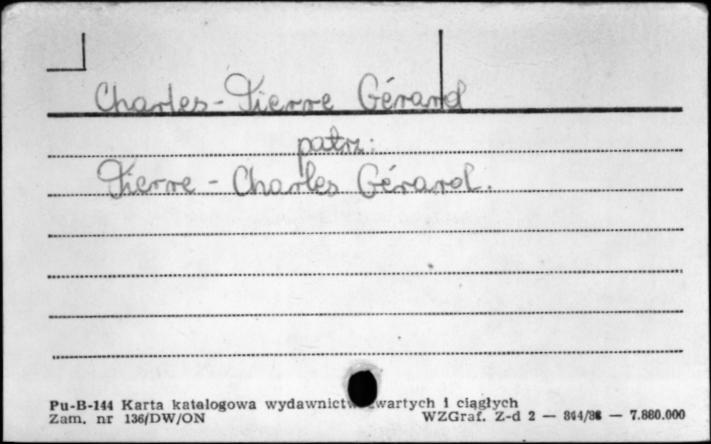 Charles-Pierre Gérard
patrz:
Pierre - Charles Gérard.
Pu-B-144 Karta katalogowa wydawnictw zwartych i ciągłych
Zam. nr 136/DW/ON WZGraf. Z-d 2 — — 7.880.000